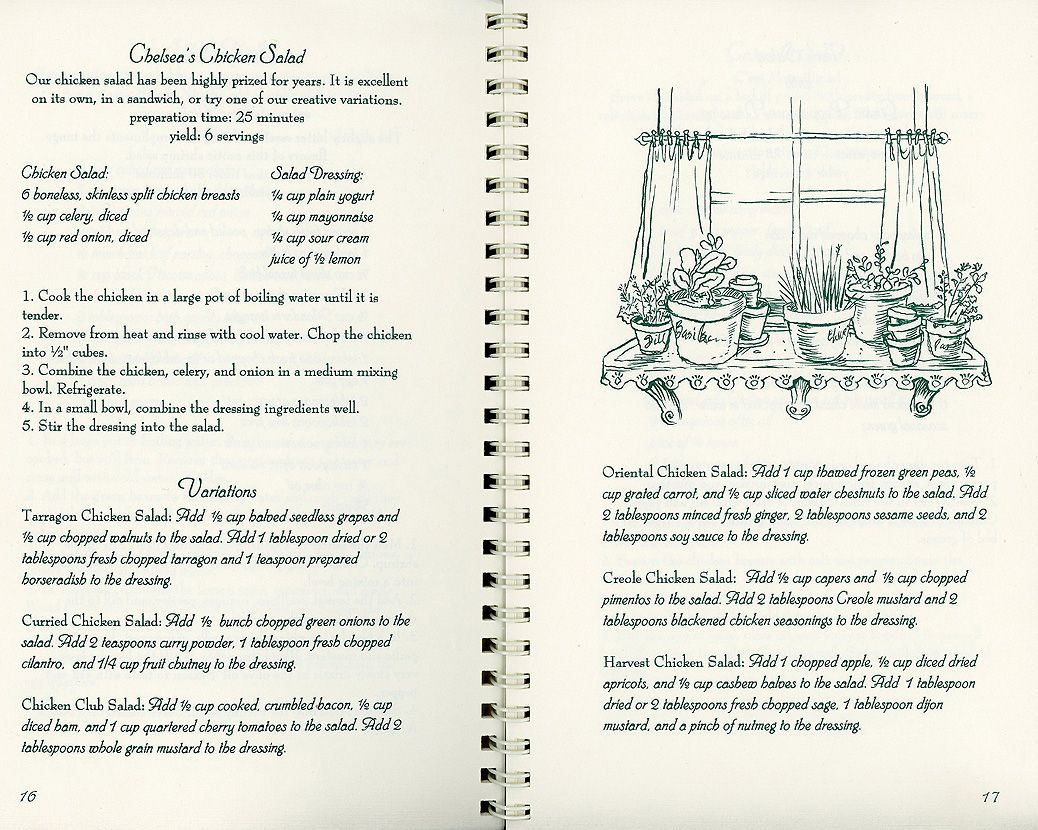 Chelsea's Chicken Salad
Our chicken salad has been highly prized for years. It is excellent
on its own, in a sandwich, or try one of our creative variations.
preparation time: 25 minutes
yield: 6 servings
Chicken Salad:
6 boneless, skinless split chicken breasts
½ cup celery, diced
½ cup red onion, diced
Salad Dressing:
¼ cup plain yogurt
¼ cup mayonnaise
¼ cup sour cream
juice of ½ lemon
1. Cook the chicken in a large pot of boiling water until it is
tender.
2. Remove from heat and rinse with cool water. Chop the chicken
into ½" cubes.
3. Combine the chicken, celery, and onion in a medium mixing
bowl. Refrigerate.
4. In a small bowl, combine the dressing ingredients well.
5. Stir the dressing into the salad.
Variations
Tarragon Chicken Salad: Add ½ cup halved seedless grapes and
½ cup chopped walnuts to the salad. Add 1 tablespoon dried or 2
tablespoons fresh chopped tarragon and 1 teaspoon prepared
horseradish to the dressing.
Curried Chicken Salad: Add ½ bunch chopped green onions to the
salad. Add 2 teaspoons curry powder, 1 tablespoon fresh chopped
cilantro, and 1/4 cup fruit chutney to the dressing.
Chicken Club Salad: Add ½ cup cooked, crumbled bacon, ½ cup
diced ham, and 1 cup quartered cherry tomatoes to the salad. Add 2
tablespoons whole grain mustard to the dressing.
16
Dill
Basil
Oriental Chicken Salad: Add 1 cup thawed frozen green peas, ½
cup grated carrot, and ½ cup sliced water chestnuts to the salad. Add
2 tablespoons minced fresh ginger, 2 tablespoons sesame seeds, and 2
tablespoons soy sauce to the dressing.
Creole Chicken Salad: Add ½ cup capers and ½ cup chopped
pimentos to the salad. Add 2 tablespoons Creole mustard and 2
tablespoons blackened chicken seasonings to the dressing.
Harvest Chicken Salad: Add 1 chopped apple, ½ cup diced dried
apricots, and ½ cup cashew halves to the salad. Add 1 tablespoon
dried or 2 tablespoons fresh chopped sage, 1 tablespoon dijon
mustard, and a pinch of nutmeg to the dressing.
17